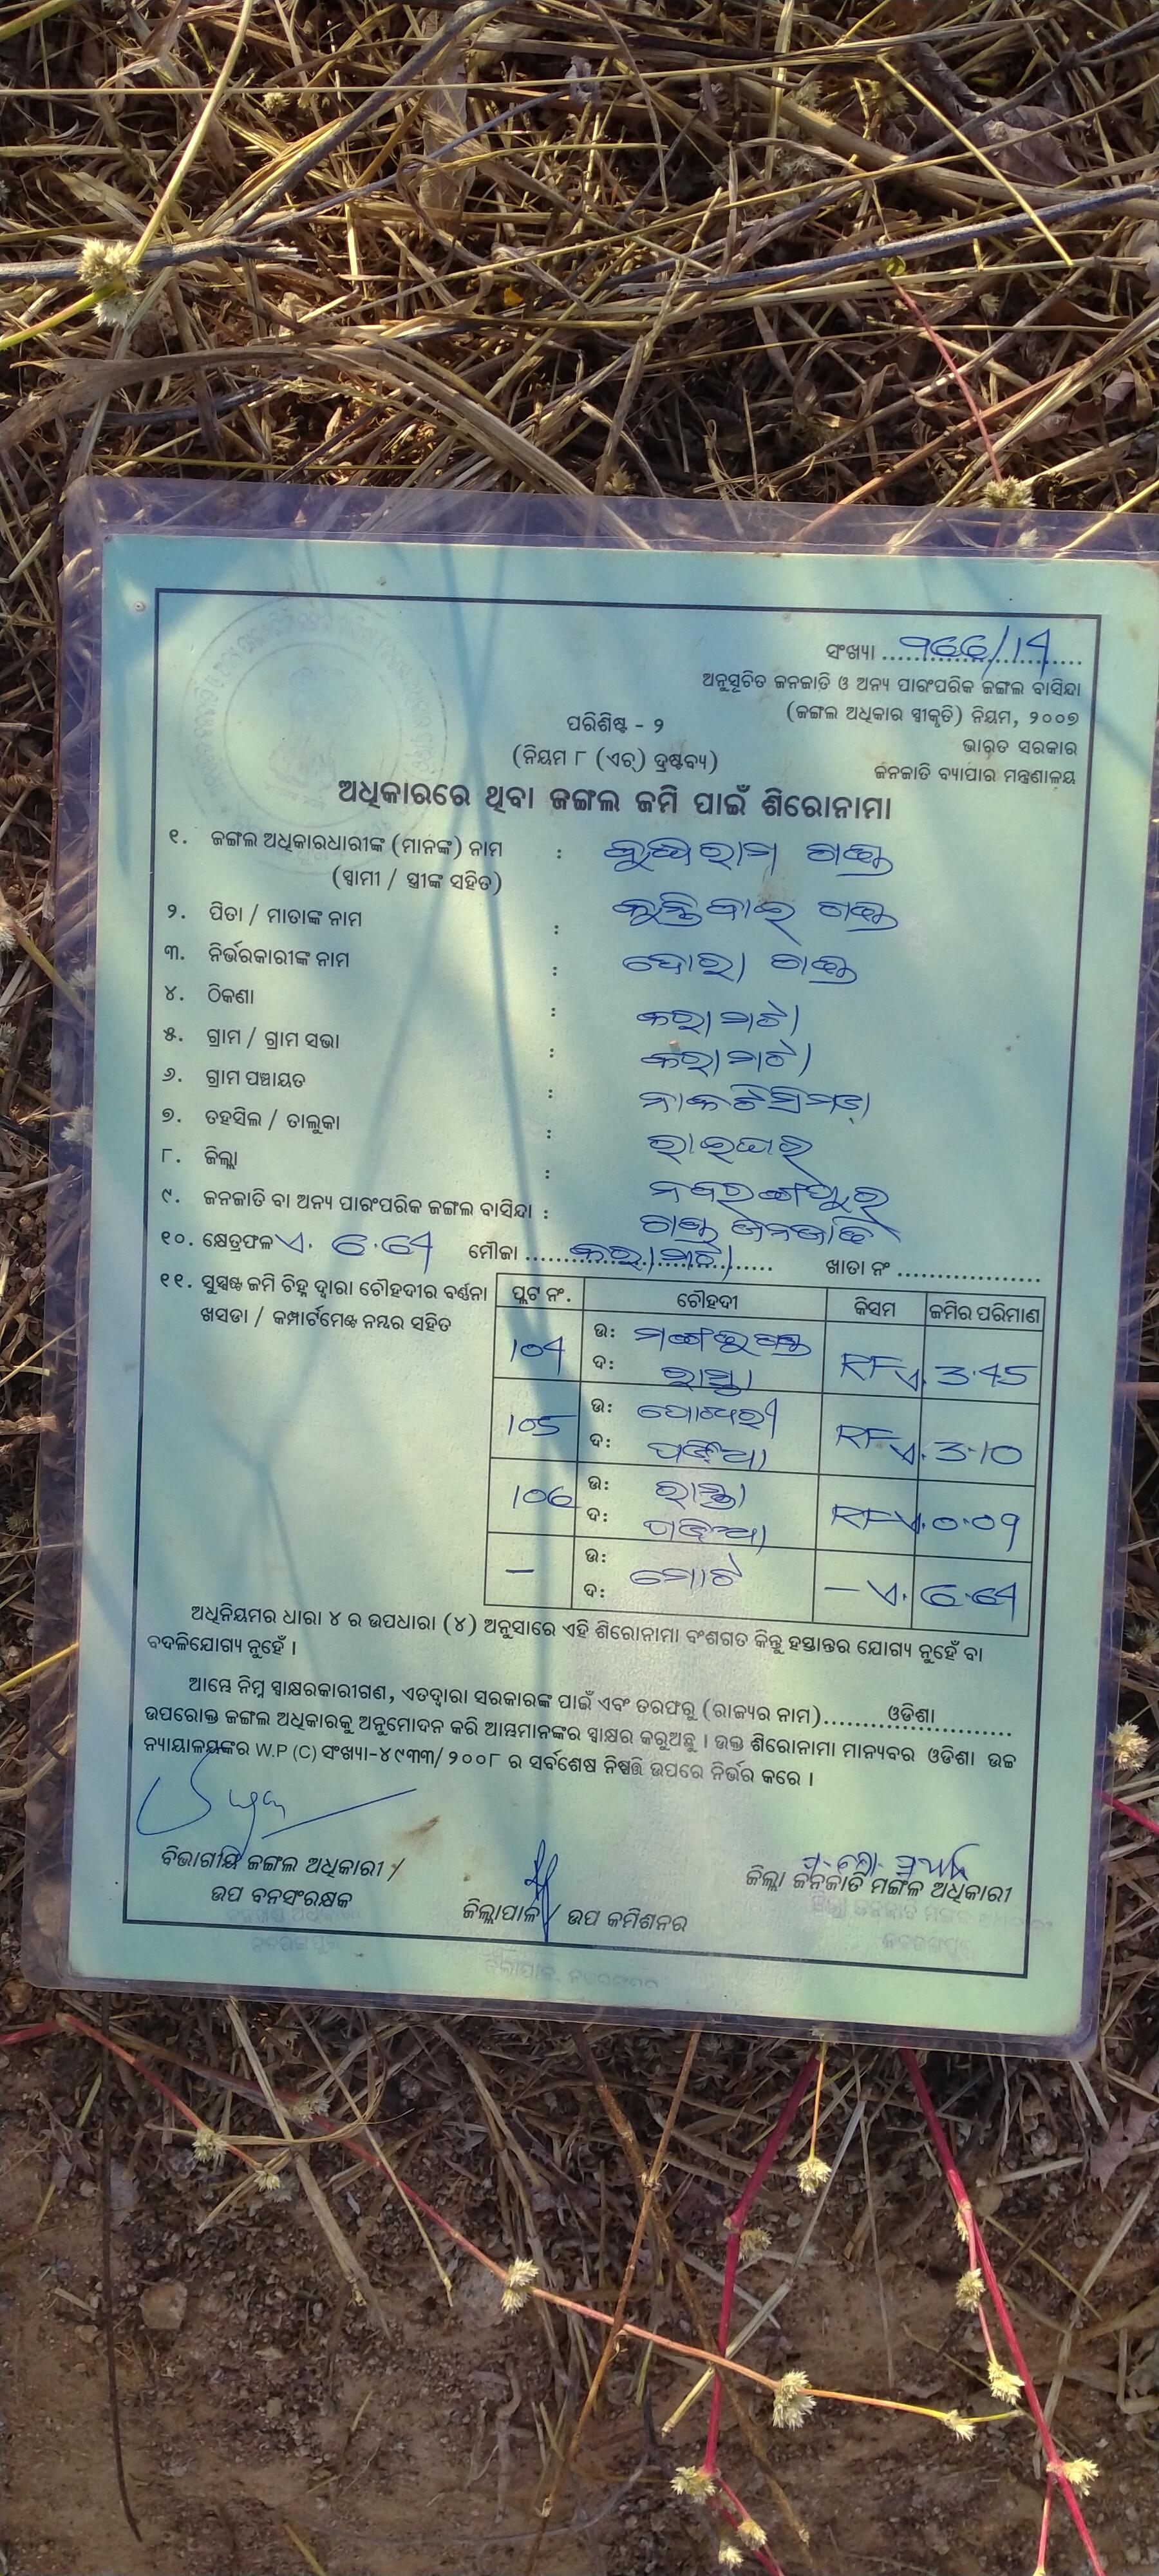 ସଂଖ୍ୟା ....................
ଅନୁସୂଚିତ ଜନଜାତି ଓ ଅନ୍ୟ ପାରଂପରିକ ଜଙ୍ଗଲ ବାସିନ୍ଦା
(ଜଙ୍ଗଲ ଅଧିକାର ସ୍ୱୀକୃତି) ନିୟମ, ୨୦୦୭
ଭାରତ ସରକାର
ଜନଜାତି ବ୍ୟାପାର ମନ୍ତ୍ରଣାଳୟ
ପରିଶିଷ୍ଟ - ୨
(ନିୟମ ୮ (ଏଚ୍) ଦ୍ରଷ୍ଟବ୍ୟ)
ଅଧିକାରରେ ଥିବା ଜଙ୍ଗଲ ଜମି ପାଇଁ ଶିରୋନାମା
୧. ଜଙ୍ଗଲ ଅଧିକାରଧାରୀଙ୍କ (ମାନଙ୍କ) ନାମ :
(ସ୍ୱାମୀ / ସ୍ତ୍ରୀଙ୍କ ସହିତ)
୨. ପିତା / ମାତାଙ୍କ ନାମ :
୩. ନିର୍ଭରକାରୀଙ୍କ ନାମ :
୪. ଠିକଣା :
୫. ଗ୍ରାମ / ଗ୍ରାମ ସଭା :
୬. ଗ୍ରାମ ପଞ୍ଚାୟତ :
୭. ତହସିଲ / ତାଲୁକା : ରାଇଘର
୮. ଜିଲ୍ଲା : ନବରଙ୍ଗପୁର
୯. ଜନଜାତି ବା ଅନ୍ୟ ପାରଂପରିକ ଜଙ୍ଗଲ ବାସିନ୍ଦା : ଗଣ୍ଡ ଜନଜାତି
୧୦. କ୍ଷେତ୍ରଫଳ ଏ. 6.64 ମୌଜା .................... ଖାତା ନଂ ....................
୧୧. ସୁସ୍ପଷ୍ଟ ଜମି ଚିହ୍ନ ଦ୍ୱାରା ଚୌହଦୀର ବର୍ଣ୍ଣନା
ଖସଡା / କମ୍ପାର୍ଟମେଣ୍ଟ ନମ୍ବର ସହିତ
ପ୍ଲଟ ନଂ. ଚୌହଦୀ କିସମ ଜମିର ପରିମାଣ
104 ଉ: RF ଏ. 3.45
ଦ: ରାସ୍ତା
105 ଉ: RF ଏ. 3.10
ଦ: ପଡିଆ
106 ଉ: ରାସ୍ତା RF ଏ. 0.09
ଦ: ପଡିଆ
- ଉ: ମୋଟ - ଏ. 6.64
ଦ:
ଅଧିନିୟମର ଧାରା ୪ ର ଉପଧାରା (୪) ଅନୁସାରେ ଏହି ଶିରୋନାମା ବଂଶଗତ କିନ୍ତୁ ହସ୍ତାନ୍ତର ଯୋଗ୍ୟ ନୁହେଁ ବା
ବଦଳିଯୋଗ୍ୟ ନୁହେଁ ।
ଆମ୍ଭେ ନିମ୍ନ ସ୍ୱାକ୍ଷରକାରୀଗଣ, ଏତଦ୍ୱାରା ସରକାରଙ୍କ ପାଇଁ ଏବଂ ତରଫରୁ (ରାଜ୍ୟର ନାମ)......ଓଡିଶା............
ଉପରୋକ୍ତ ଜଙ୍ଗଲ ଅଧିକାରକୁ ଅନୁମୋଦନ କରି ଆମ୍ଭମାନଙ୍କର ସ୍ୱାକ୍ଷର କରୁଅଛୁ । ଉକ୍ତ ଶିରୋନାମା ମାନ୍ୟବର ଓଡିଶା ଉଚ୍ଚ
ନ୍ୟାୟାଳୟଙ୍କର W.P (C) ସଂଖ୍ୟା-୪୯୩୩/ ୨୦୦୮ ର ସର୍ବଶେଷ ନିଷ୍ପତ୍ତି ଉପରେ ନିର୍ଭର କରେ ।
ବିଭାଗୀୟ ଜଙ୍ଗଲ ଅଧିକାରୀ /
ଉପ ବନସଂରକ୍ଷକ
ଜିଲ୍ଲାପାଳ / ଉପ କମିଶନର
ଜିଲ୍ଲା ଜନଜାତି ମଙ୍ଗଳ ଅଧିକାରୀ